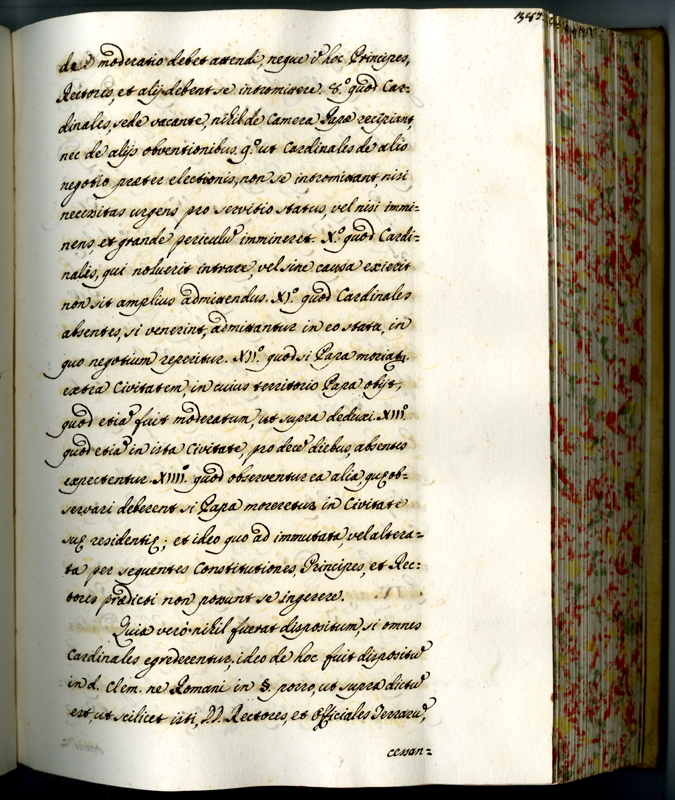 moderatio debet attendi, neque ĩ hoc Principes,
Rectores, et alij debent se intromittere. 8.º quod Car=
dinales, sede vacante, nihil de Camera Papæ recipiant,
nec de alijs obventionibus. 9.º ut Cardinales de alio
negotio præter electionis, non se intromittant, nisi
necessitas urgens, pro servitio status, vel nisi immi=
nens, et grande periculũ immineret. X.º quod Cardi=
nales, qui noluerit intrare, vel sine causa exierit
non sit amplius admittendus. XI.º quod Cardinales
absentes, si venerint, admittantur in eo statu, in
quo negotium reperitur. XII.º quod si Papa moriat.
extra Civitatem, in cuius territorio Papa obijt,
quod etiã fuit moderatum, ut supra deduxi. XIII.º
quod etiã in ista Civitate pro decẽ diebus, absentes
expectentur. XIIII.º quod observentur ea alia, quę ob=
servari deberent si Papa moreretur in Civitate
suę residentię; et ideo quo ad immutata, vel altera=
ta per sequentes Constitutiones, Principes, et Rec=
tores prædicti non possunt se ingerere.
Quia verò nihil fuerat dispositum, si omnes
Cardinales egrederentur, ideo de hoc fuit dispositũ
in d. Clem. ne Romani in §. porro, ut supra dictũ
est, ut scilicet isti, DD. Rectores, et Officiales Terrarũ,
cessan=